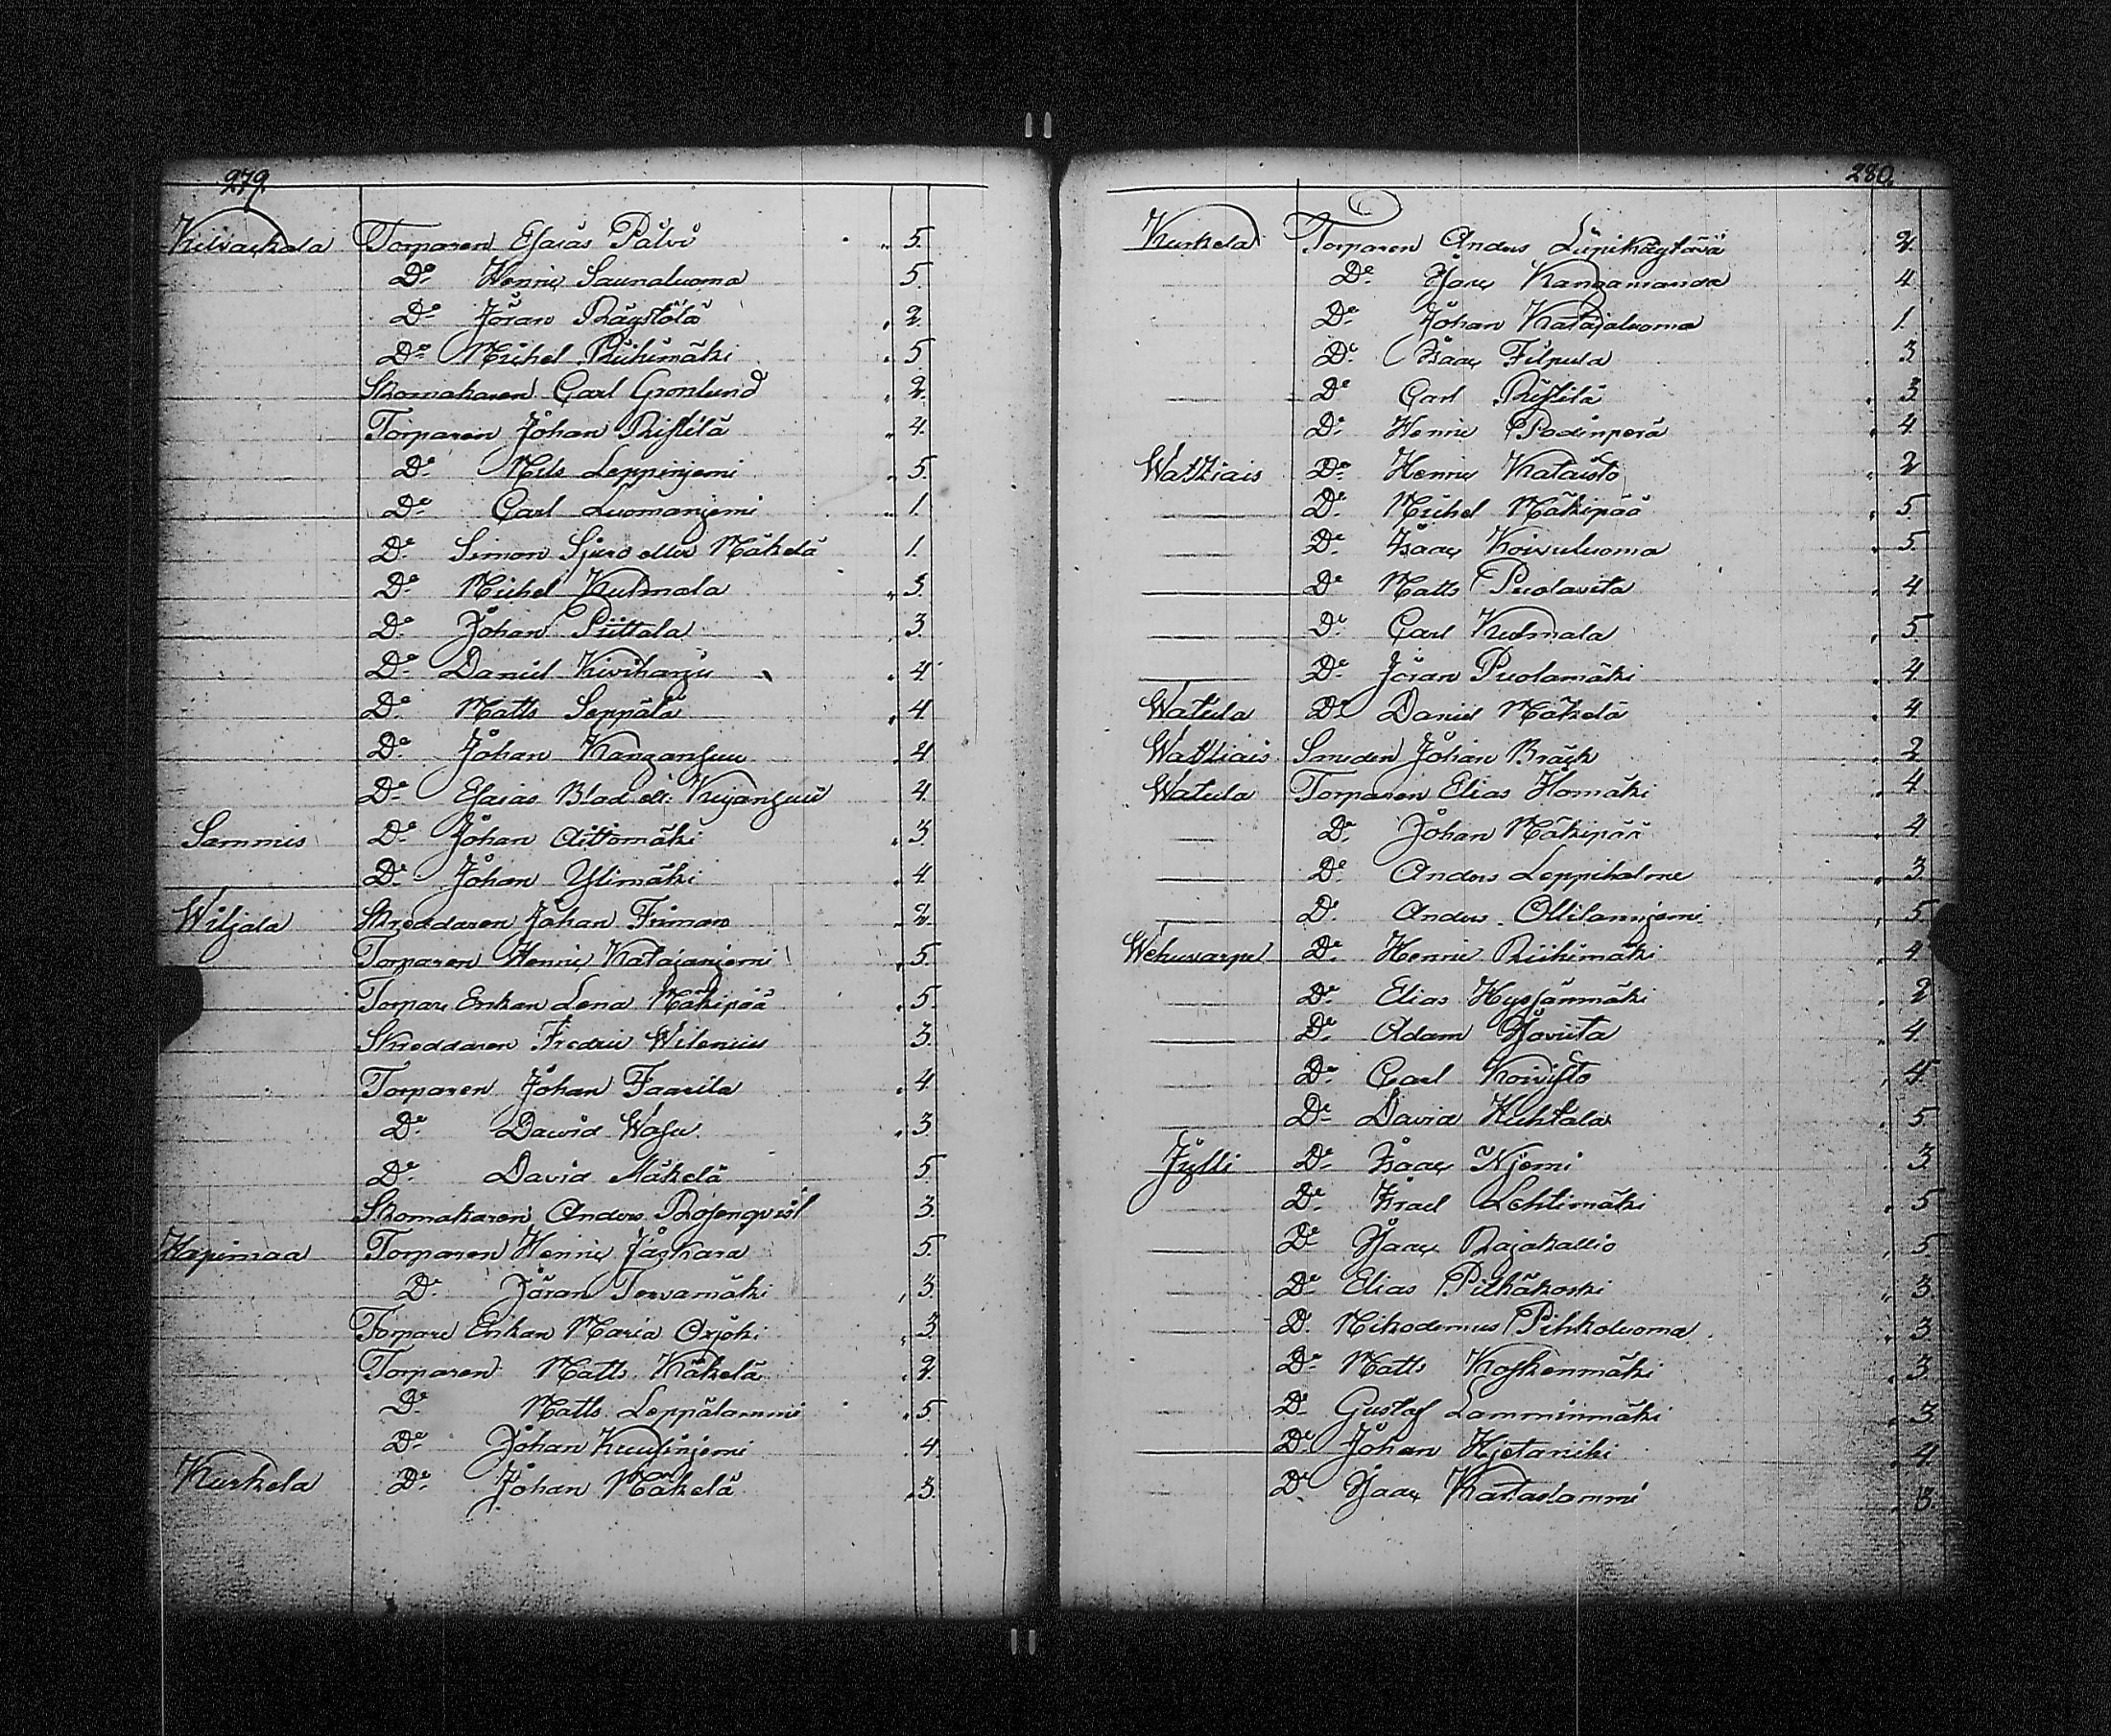 279.
Kilvackala Torparen Esaias Pålvi " 5.
Do Henric Saunaluoma 5.
Do Jöran Räystölä " 2.
Do Michel Riihimäki " 5
Skomakaren Carl Grönlund " 2.
Torparen Johan Ristilä " 4.
Do Nils Leppinjemi " 5.
Do Carl Luomanjemi " 1.
Do Simon Sjurs eller Mäkelä 1.
Do Michel Kulmala " 3.
Do Johan Piittala 3.
Do Daniel Kiviharju " 4
Do Matts Seppälä " 4
Do Johan Kangansuu " 4
Do Esaias Blad ell: Kujansuu 4.
Sammis Do Johan Aittomäki " 3.
Do Johan Ylimäki " 4.
Wiljala Skreddaren Johan Friman " 2.
Torparen Henric Katajanjemi " 5.
Torpare Enkan Lena Mäkipää " 5.
Skreddaren Fredric Wilenius 3.
Torparen Johan Faarila " 4.
Do Dawid Wasu " 3.
Do David Mäkelä 5.
Skomakaren Anders Rosenqvist 3.
Hapimaa Torparen Henric Jäskara 5.
Do Jöran Tervamäki , 3.
Torpare Enkan Maria Oxjoki " 3.
Torparen Matts Mäkelä " 2.
Do Matts Leppälammi " 5.
Do Johan Kuusinjemi " 4.
Kurkela Do Johan Mäkelä " 3.
280.
Kurkela Torparen Anders Läpikäytävä 2.
Do Isaac Kangamanda 4.
Do Johan Katajaluoma 1.
Do Isaac Filpula " 3
Do Carl Ristilä " 3.
Do Henric Podinperä " 4.
Wattiais Do Henric Kataisto " 2
Do Michel Mäkipää " 5.
Do Isaac Koivuluoma " 5.
Do Matts Puolavita " 4
Do Carl Kulmala , 5.
Do Jöran Puolamäki " 4.
Watula Do Daniel Mäkelä " 4
Wattiais Smeden Johan Bräck " 2
Watula Torparen Elias Homäki " 4.
Do Johan Mäkipää " 4.
Do Anders Leppihalme " 3.
Do Anders Ollilannjemi " 5
Wehuvarpe Do Henric Riihimäki " 4
Do Elias Hyssänmäki " 2
Do Adam Isoviita " 4.
Do Carl Koivisto , 4.
Do David Huhtala " 5
Jylli Do Isaac Njemi " 3
Do Israel Lehtimäki " 5
Do Isaac Rajakallio , 5.
Do Elias Pitkäkoski " 3.
Do Nikodemus Pihkoluoma " 3
Do Matts Koskenmäki " 3
Do Gustaf Lamminmäki " 3
Do Johan Hjetaniki " 4.
Do Isaac Kataslammi " 3.